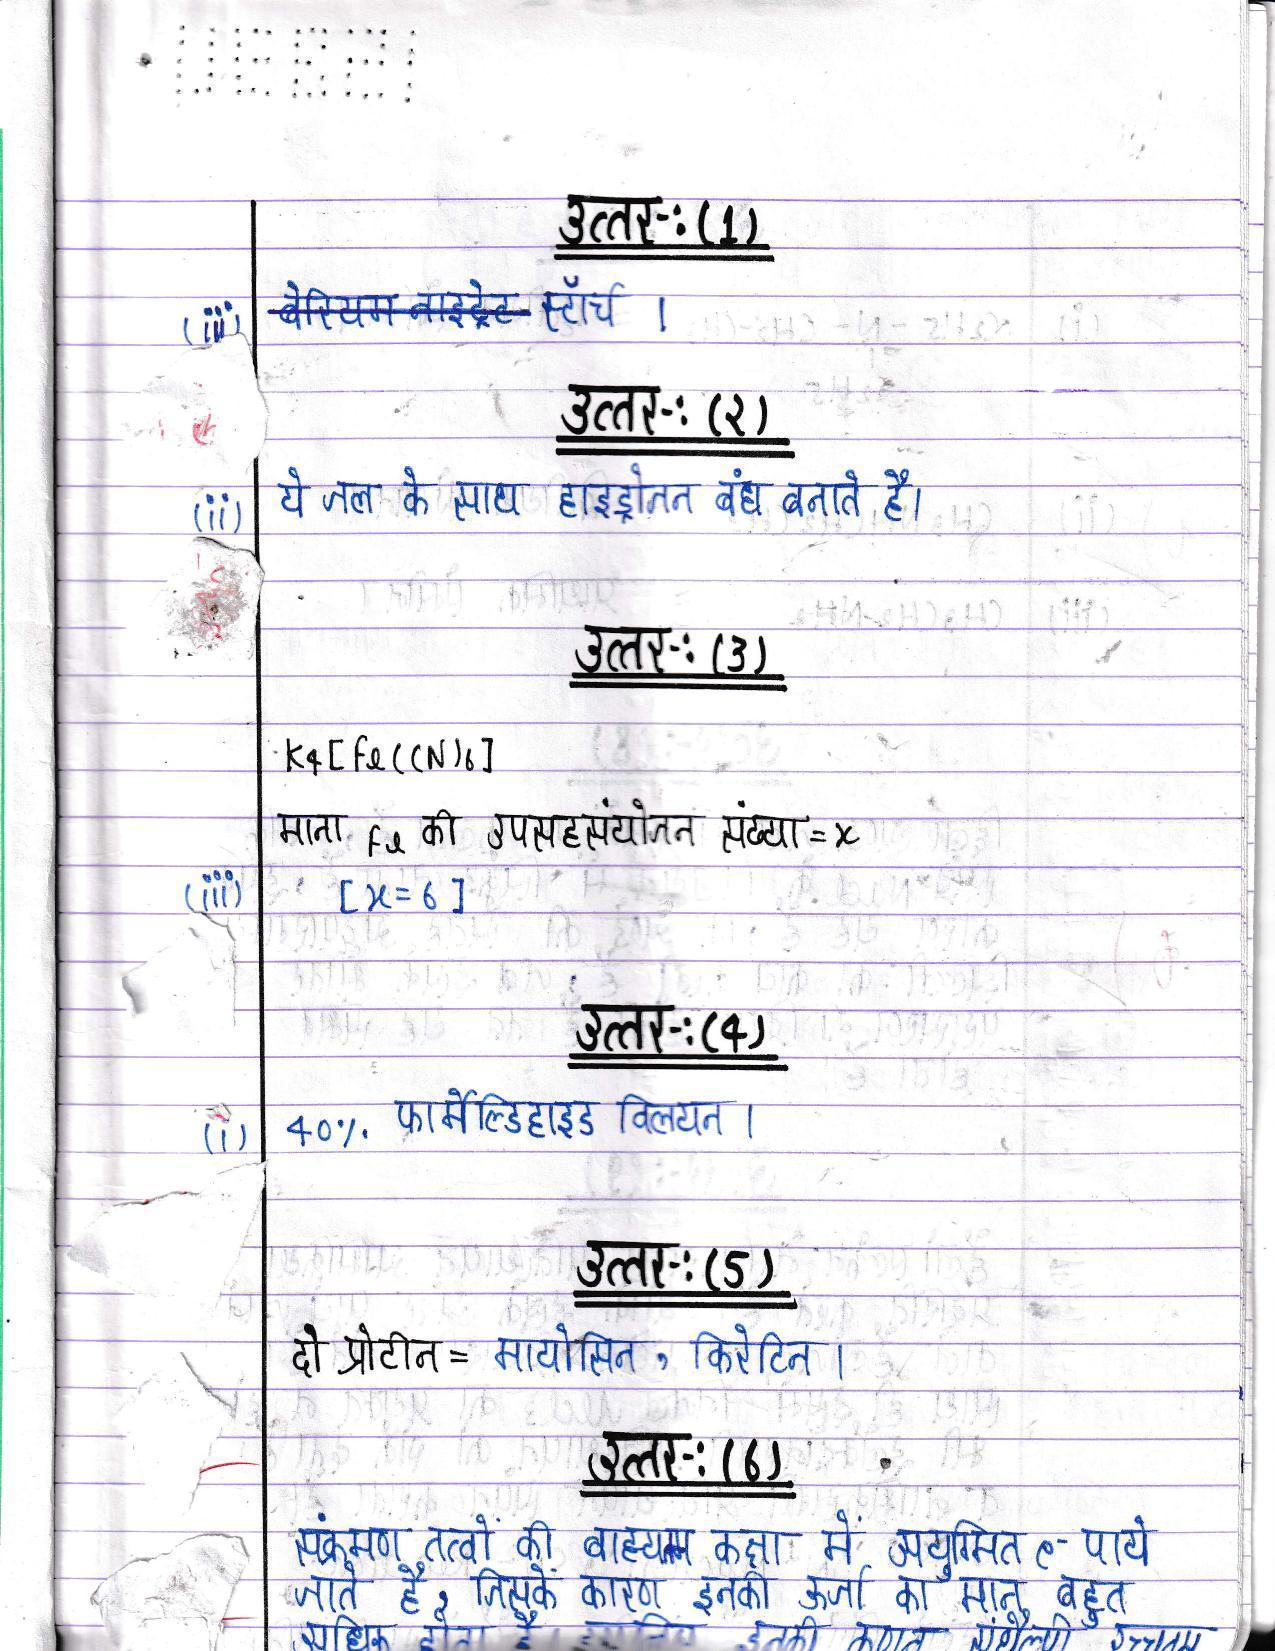 उत्तर-: (1)
(iii) बेरियम नाइट्रेट स्टॉर्च ।
उत्तर-: (२)
(ii) ये जल के साथ हाइड्रोजन बंध बनाते है।
उत्तर-: (3)
K4[Fe(CN)6]
माना Fe की उपसहसंयोजन संख्या = x
(iii) [x=6]
उत्तर-: (4)
(i) 40%. फार्मेल्डिहाइड विलयन ।
उत्तर-: (5)
दो प्रोटीन = मायोसिन, किरेटिन ।
उत्तर-: (6)
संक्रमण तत्वों की बाह्यतम कक्षा में अयुग्मित e- पाये
जाते है, जिसके कारण इनकी ऊर्जा का मान बहुत
अधिक होता है इनकी